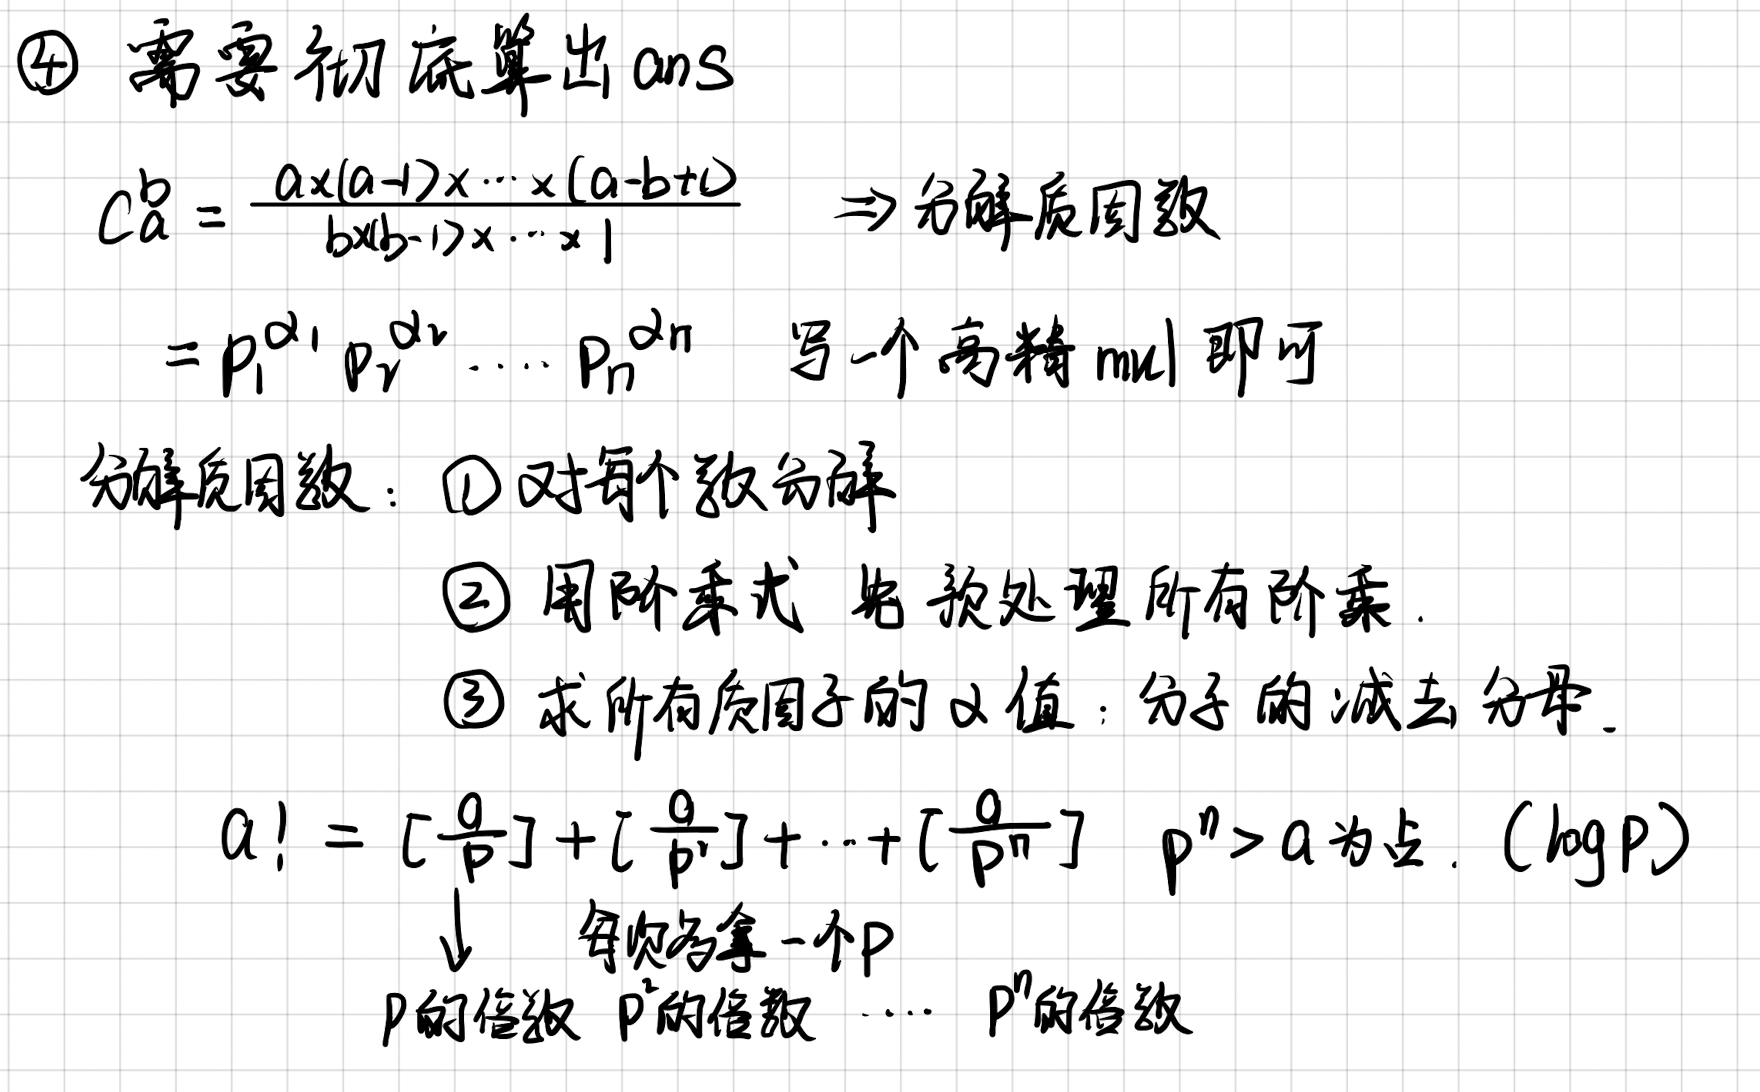 ④ 需要彻底算出ans
C_a^b = \frac{a×(a-1)×⋯×(a-b+1)}{b×(b-1)×⋯×1} ⇒ 分解质因数
= p_1^{α_1} p_2^{α_2} ⋯⋯ p_n^{αn} 写一个高精mul即可
分解质因数: ① 对每个数分解
② 用阶乘式 先预处理所有阶乘.
③ 求所有质因子的α值: 分子的减去分母.
a! = [\frac{a}{p}] + [\frac{a}{p^2}] + ⋯ + [\frac{a}{p^n}] p^n > a 为止. (log p)
↓ 每次多拿一个p
p的倍数 p^2的倍数 ⋯⋯ p^n的倍数